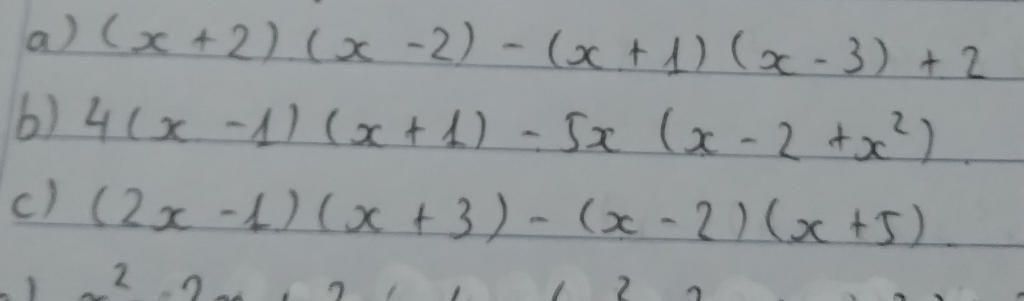 a) (x + 2) (x - 2) - (x + 1) (x - 3) + 2
b) 4(x - 1) (x + 1) - 5x (x - 2 + x²)
c) (2x - 1) (x + 3) - (x - 2) (x + 5)